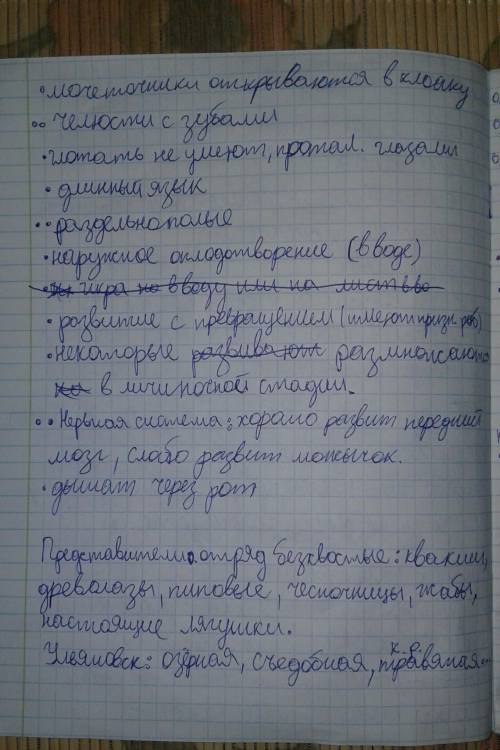 • мочеточники открываются в клоаку
•• челюсти с зубами
• глотать не умеют, протал. глазами
• длинный язык
•• раздельнополые
• наружное оплодотворение (в воде)
• икра на в воду или на листьво
• развитие с превращением (имеют призн. рыб)
• некоторые развивают размножаются
на в личиночной стадии.
•• Нервная система: хорошо развит передний
мозг, слабо развит мозжечок.
• дышат через рот
Представители: отряд безхвостые: квакши,
древолазы, пиповые, чесночницы, жабы,
настоящие лягушки.
Ульяновск: озёрная, съедобная, травяная